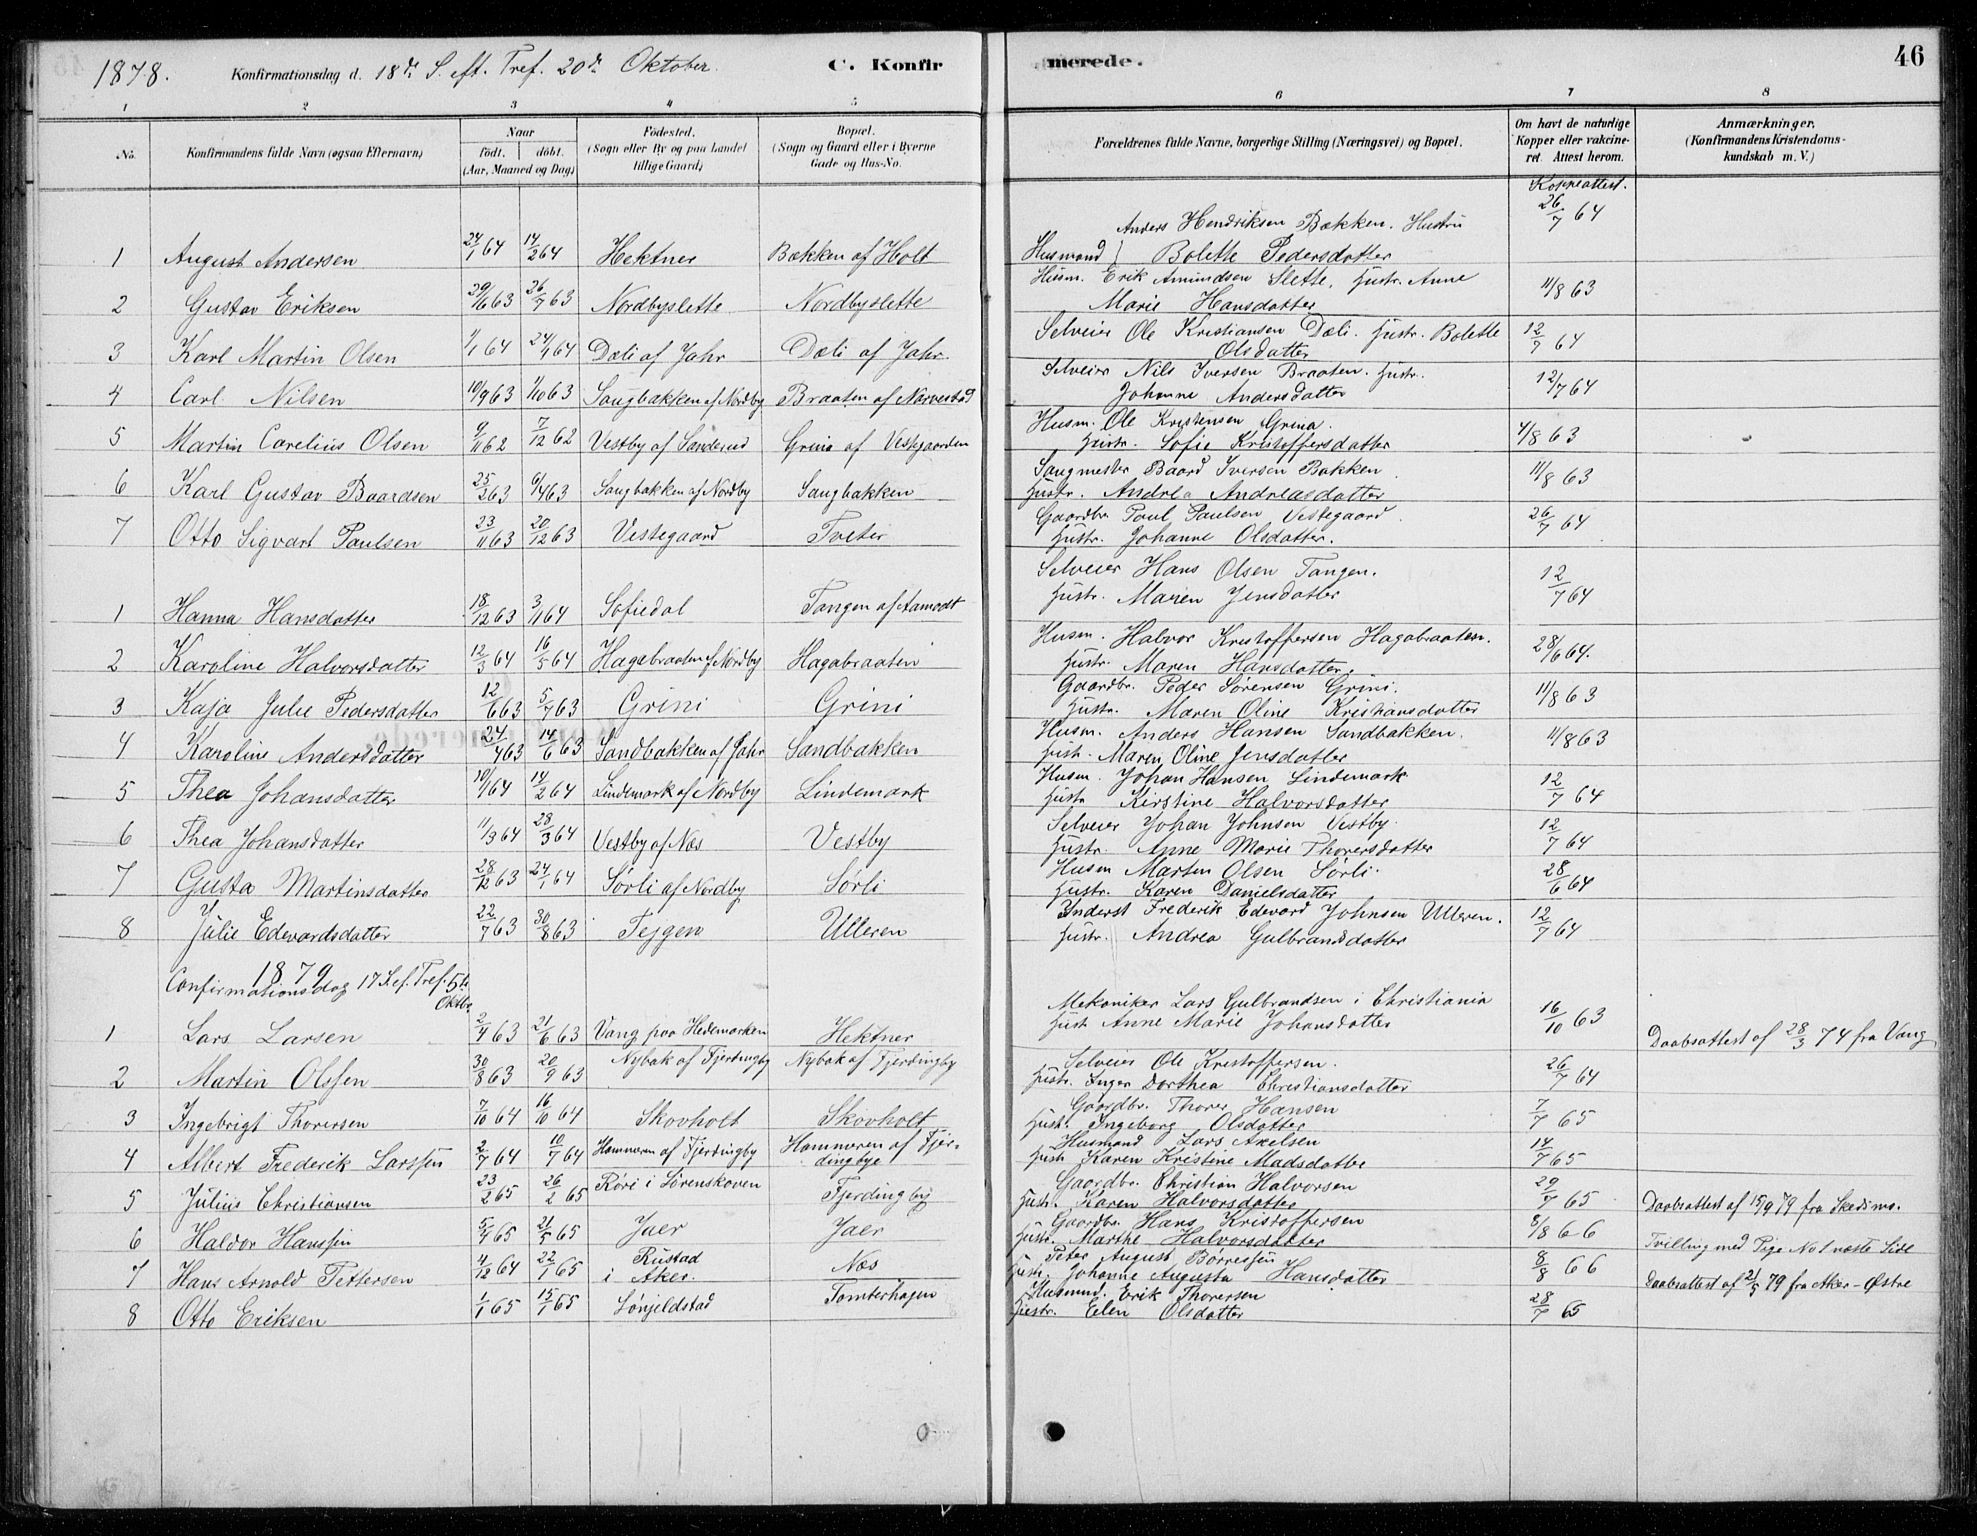 1878. Konfirmationsdag d. 18de S. eft. Tref. 20de Oktober. C. Konfirmerede. 46
1 2 3 4 5 6 7 8
No. Konfirmandens fulde Navn (ogsaa Efternavn) Naar født. døbt. (Aar, Maaned og Dag) Fødested. (Sogn eller By og paa Landet tillige Gaard) Bopæl. (Sogn og Gaard eller i Byerne Gade og Hus-No. Forældrenes fulde Navne, borgerlige Stilling (Næringsvei) og Bopæl. Om havt de naturlige Kopper eller vakcineret. Attest herom. Anmærkninger, (Konfirmandens Kristendomskundskab m. V.)
Koppeattest.
1 August Andersen 24/1 64 14/2 64 Hektner Bækken af Holt Husmand Anders Hendriksen Bækken. Hustru Bolette Pedersdatter 26/7 64
2 Gustav Eriksen 29/6 63 26/7 63 Nordbyslette Nordbyslette Husm. Erik Amundsen Slette, Hustr. Anne Marie Hansdatter 11/8 63
3 Karl Martin Olsen 1/1 64 24/1 64 Dæli af Jahr Dæli af Jahr. Selveier Ole Kristiansen Dæli. Hustr. Bolette Olsdatter 12/7 64
4 Carl Nilsen 10/9 63 1/10 63 Saugbakken af Nordby Braaten af Narvestad Selveier Nils Iversen Braaten. Hustr. Johanne Andersdatter 12/7 64
5 Martin Carelius Olsen 9/11 62 7/12 62 Vestby af Sanderud Grina af Vestgaarden Husm. Ole Kristensen Grina. Hustr. Sofie Kristoffersdatter 4/8 63
6 Karl Gustav Baardsen 25/2 63 6/4 63 Saugbakken af Nordby Saugbakken Saugmester Baard Iversen Bakken Hustr. Andrea Andreasdatter 11/8 63
7 Otto Sigvart Paulsen 23/11 63 20/12 63 Vestegaard Tveter Gaardbr. Paul Paulsen Vestegaard. Hustr. Johanne Olsdatter. 26/7 64
1 Hanna Hansdatter 18/12 63 3/1 64 Sofiedal Tangen af Aamodt Selveier Hans Olsen Tangen. Hustr. Maren Jensdatter 12/7 64
2 Karoline Halvorsdatter 12/3 64 16/5 64 Hagabraaten af Nordby Hagabraaten Husm. Halvor Kristoffersen Hagabraaten. Hustr. Maren Hansdatter. 28/6 64.
3 Kaja Julie Pedersdatter 12/6 63 5/7 63 Grini Grini Gaardbr. Peder Sørensen Grini. Hustr. Maren Oline Kristiansdatter 11/8 63
4 Karoline Andersdatter 24/4 63 14/6 63 Sandbakken af Jahr Sandbakken Husm. Anders Hansen Sandbakken. Hustr. Maren Oline Jensdatter 11/8 63
5 Thea Johansdatter 10/1 64 14/2 64 Lindemark af Nordby Lindemark Husm. Johan Hansen Lindemark Hustr. Kirstine Halvorsdatter 12/7 64
6 Thea Johansdatter 11/3 64 28/3 64 Vestby af Næs Vestby Selveier Johan Johnsen Vestby. Hustr. Anne Marie Thorersdatter 12/7 64
7 Gusta Martinsdatter 28/12 63 24/1 64 Sørli af Nordby Sørli Husm Martin Olsen Sørli. Hustr. Karen Danielsdatter 28/6 64
8 Julie Edevardsdatter 22/7 63 30/8 63 Tejgen Ulleren Inderst Frederik Edevard Johnsen Ulleren. Hustr. Andrea Gulbrandsdatter 12/7 64
1879
Confirmationsdag 17 S. ef. Tref. 5te Oktbr.
1 Lars Larsen 2/4 63 21/6 63 Vang paa Hedemarken Hektner Mekaniker Lars Gulbrandsen i Christiania Hustr Anne Marie Johansdatter 16/10 63 Daabsattest af 28/3 74 fra Vang
2 Martin Olssen 30/8 63 20/9 63 Nybak af Fjerdingby Nybak af Fjerdingby Selveier Ole Kristoffersen. Hustr. Inger Dorthea Christiansdatter 26/7 64
3 Ingebrigt Thorersen 7/10 64 16/10 64 Skovholt Skovholt Gaardbr. Thorer Hansen Hustr. Ingeborg Olsdatter 7/7 65
4 Albert Frederik Larssen 2/7 64 10/7 64 Hammeren af Fjerdingby Hammeren af Fjerdingbye Husmand Lars Axelsen Hustr Karen Kristine Madsdatter 14/7 65
5 Julius Christiansen 23/2 65 26/2 65 Røri i Sørenskoven Fjerdingby Gaardbr. Christian Halvorsen Hustr. Karen Halvorsdatter 29/7 65 Daabsattest af 15/9 79 fra Skedsmo.
6 Haldor Hanssen 5/4 65 21/5 65 Jaer Jaer Gaardbr. Hans Kristoffersen Hustr. Marthe Halvorsdatter 8/8 66 Tvilling med Pige No 1 næste Side
7 Hans Arnold Pettersen 4/12 64 22/1 65 Rustad i Aker. Næs Peter August Børresen Hustr. Johanne Augusta Hansdatter 8/8 66 Daabsattest af 21/5 79 fra Aker - Østre
8 Otto Eriksen 1/1 65 15/1 65 Lønjeldstad Tomterhagen Husmand. Erik Thorersen Hustr. Elen Olsdatter 28/7 65